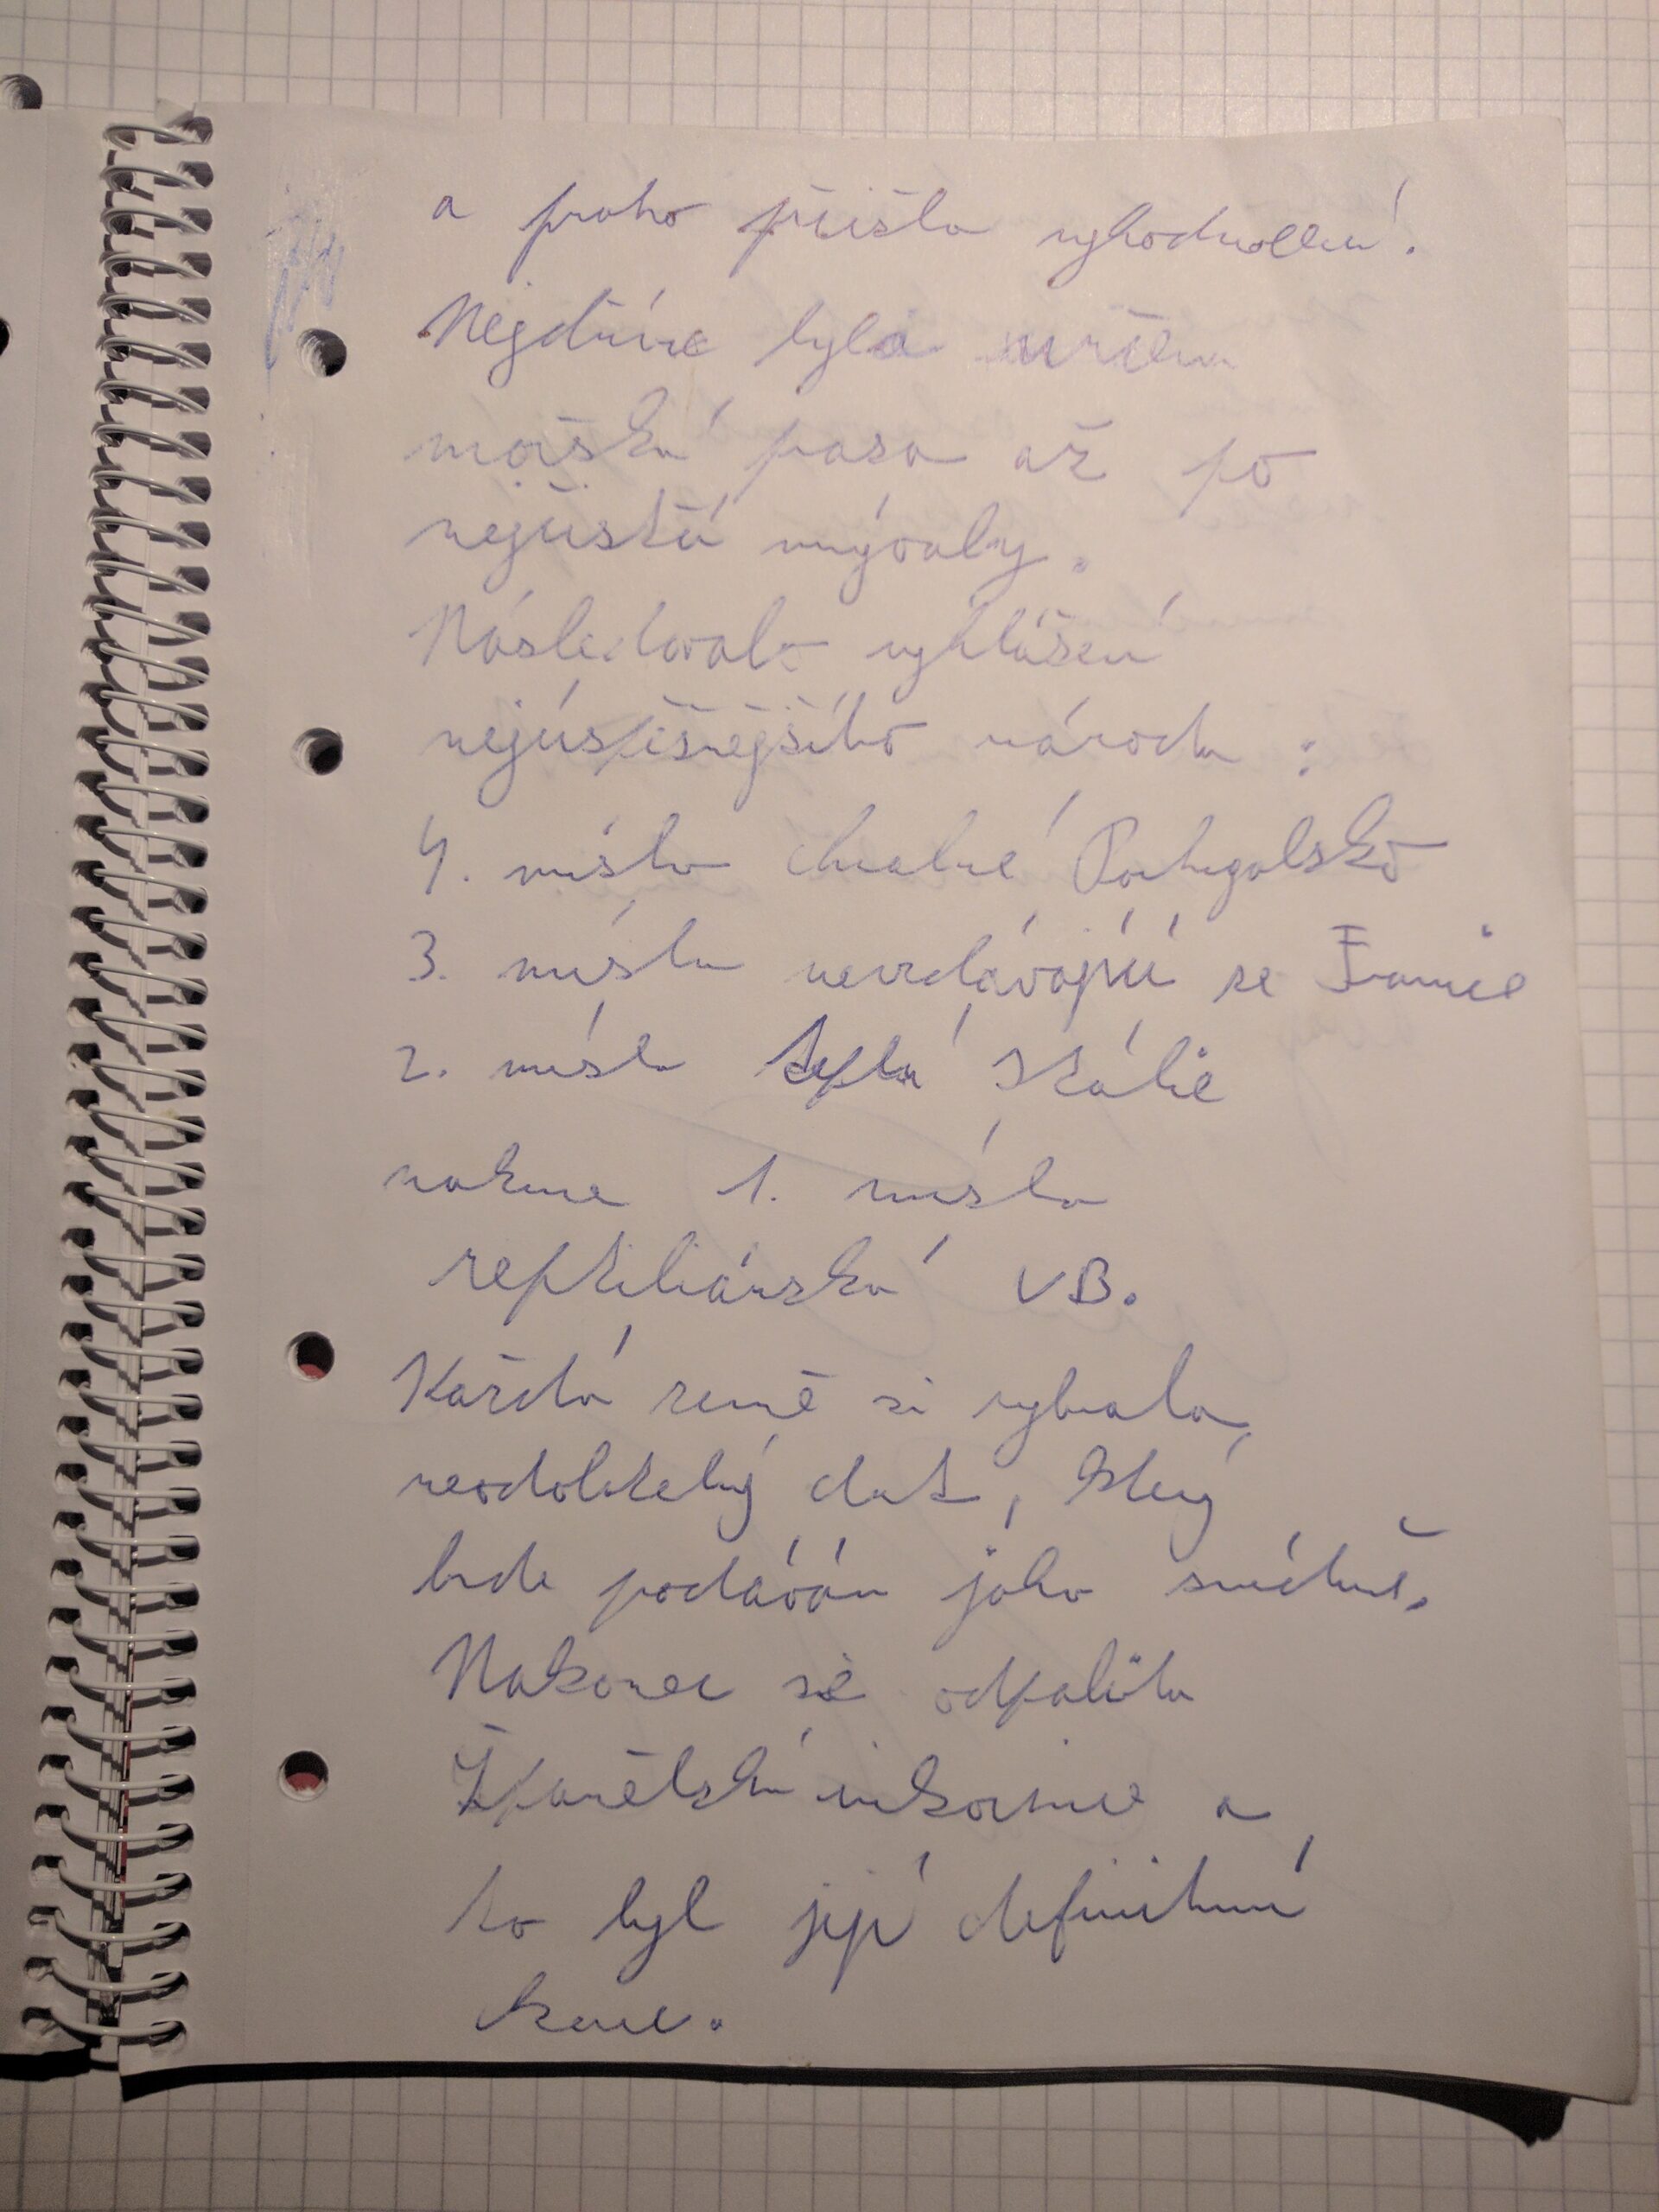 a proto přišlo vyhodnocení.
Nejdříve byla určena
mořská pasa až po
nejčistší mývaly.
Následovalo vyhlášení
nejúspěšnějšího národa :
4. místo chcalné Portugalsko
3. místo nevzdávající se Francie
2. místo teplá Itálie
nakonec 1. místo
reptiliánská VB.
Každá země si vybrala
neodolatelný dort, který
bude podáván jako svačina.
Nakonec se odpálila
Španělská inkvizice a
to byl její definitivní
konec.